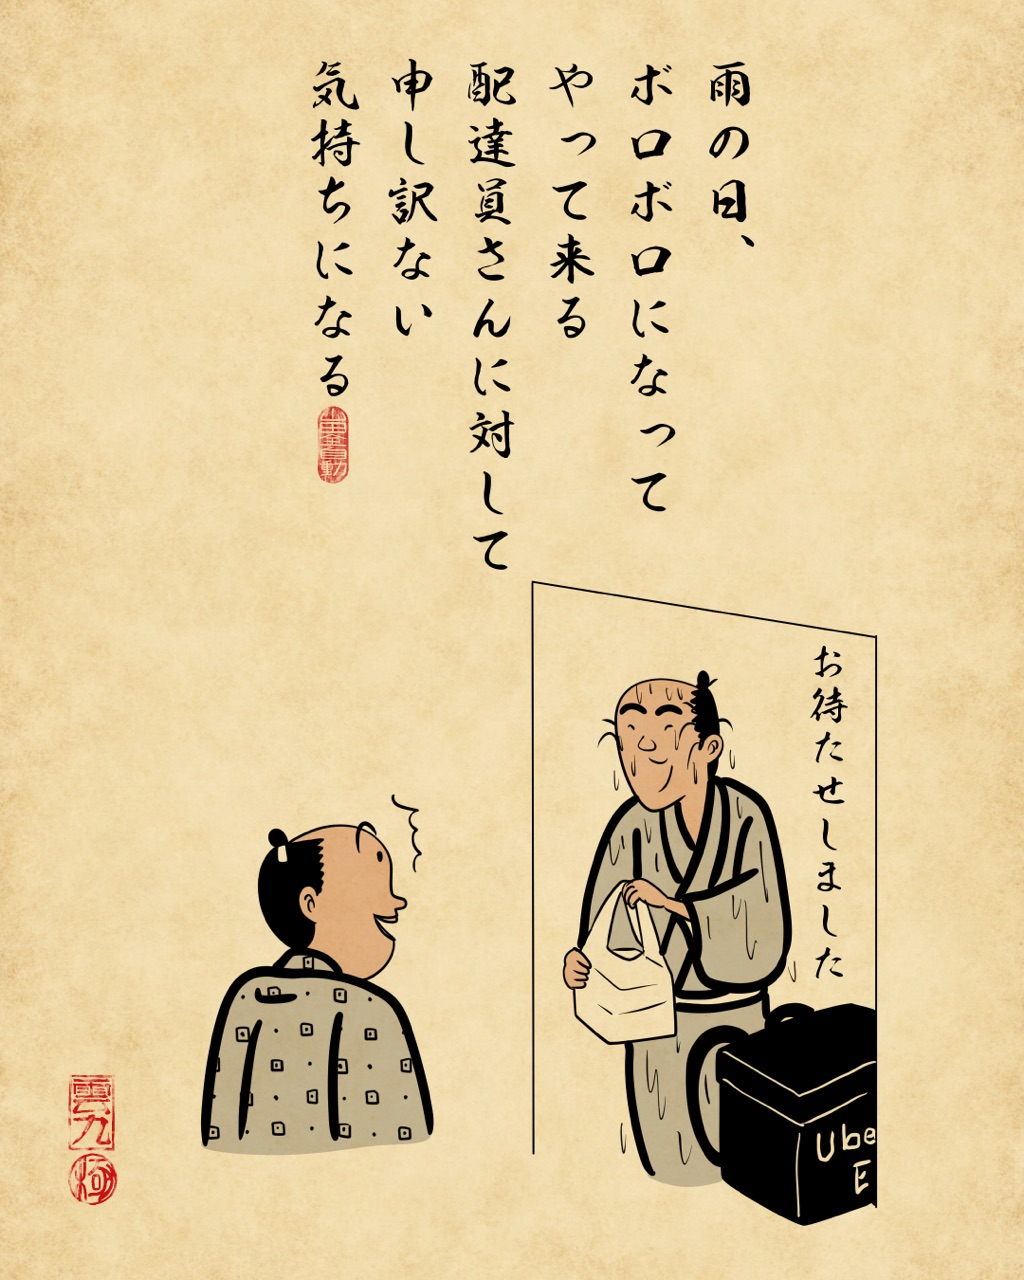 雨の日、
ボロボロになって
やって来る
配達員さんに対して
申し訳ない
気持ちになる
お待たせしました
Ube
E